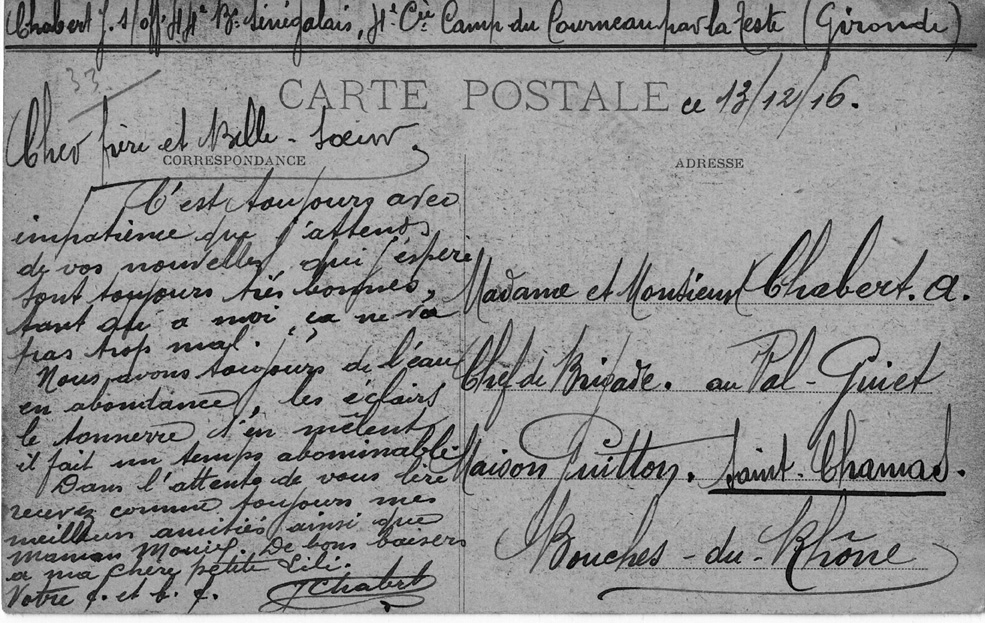 Chabert J. s/off. 44e Bon Sénégalais, 4e Cie Camp du Courneau par la Teste (Gironde)
33
CARTE POSTALE
ce 13/12/16.
Cher frère et Belle-Soeur,
CORRESPONDANCE
C'est toujours avec
impatience que j'attends
de vos nouvelles qui j'espère
sont toujours très bonnes,
tant qu'a moi, ça ne va
pas trop mal.
Nous avons toujours de l'eau
en abondance, les éclairs
le tonnerre s'en mêlent
il fait un temps abominable
Dans l'attente de vous lire
recevez comme toujours mes
meilleurs amitiés ainsi que
Maman. De bons baisers
a ma chère petite Lili.
Votre f. et b. f.
JChabert
ADRESSE
Madame et Monsieur Chabert. A.
Chef de Brigade. au Pal-Guiet
Maison Guitton. Saint-Chamas.
Bouches-du-Rhône